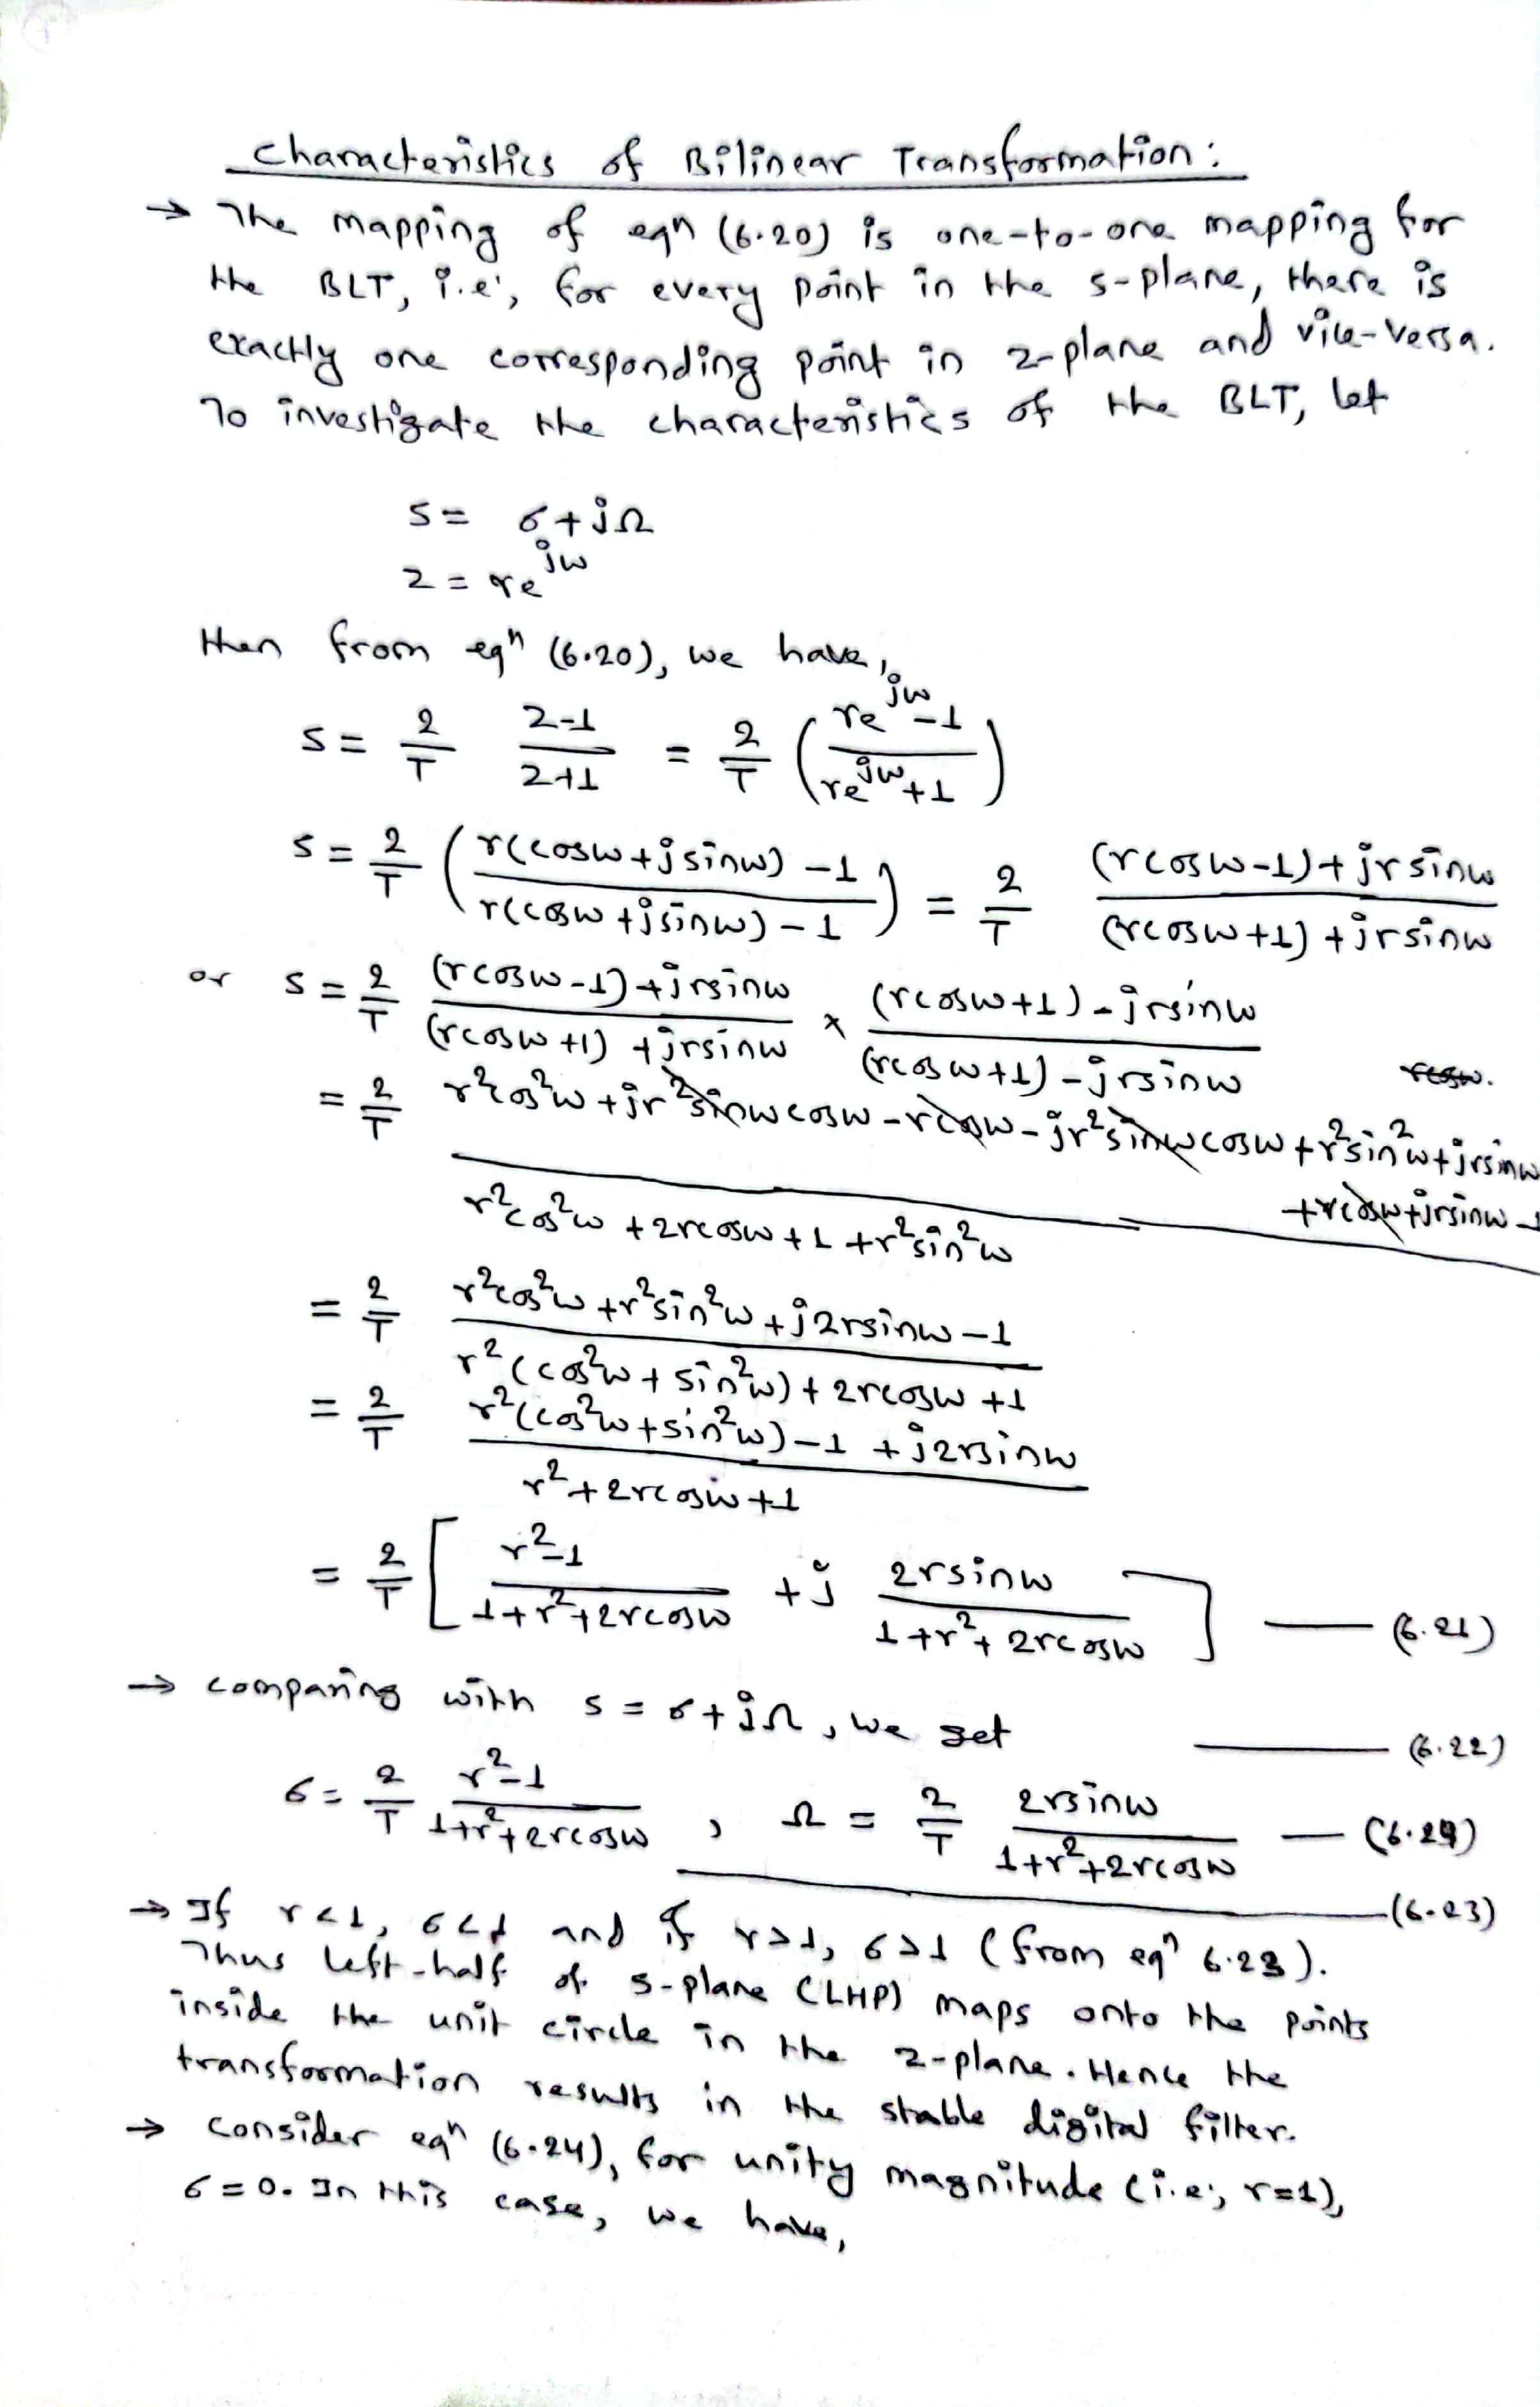 Characteristics of Bilinear Transformation:
→ The mapping of eqn (6.20) is one-to-one mapping for
the BLT, i.e., for every point in the s-plane, there is
exactly one corresponding point in z-plane and vice-versa.
To investigate the characteristics of the BLT, let
s = σ+jΩ
z = re^{jω}
then from eqⁿ (6.20), we have,
s = \frac{2}{T} \frac{z-1}{z+1} = \frac{2}{T} \left(\frac{re^{jω}-1}{re^{jω}+1}\right)
s = \frac{2}{T} \left(\frac{r(cosω+jsinω)-1}{r(cosω+jsinω)-1}\right) = \frac{2}{T} \frac{(rcosω-1)+jrsinω}{(rcosω+1)+jrsinω}
or s = \frac{2}{T} \frac{(rcosω-1)+jrsinω}{(rcosω+1)+jrsinω} × \frac{(rcosω+1)-jrsinω}{(rcosω+1)-jrsinω}
= \frac{2}{T} \frac{r²cos²ω+jr²sinωcosω-rcosω-jr²sinωcosω+r²sin²ω+jrsinω+rcosω+jrsinω-1}{r²cos²ω+2rcosω+1+r²sin²ω}
= \frac{2}{T} \frac{r²cos²ω+r²sin²ω+j2rsinω-1}{r²(cos²ω+sin²ω)+2rcosω+1}
= \frac{2}{T} \frac{r²(cos²ω+sin²ω)-1+j2rsinω}{r²+2rcosω+1}
= \frac{2}{T} \left[\frac{r²-1}{1+r²+2rcosω} +j \frac{2rsinω}{1+r²+2rcosω}\right] — (6.21)
→ comparing with s = σ+jΩ, we get — (6.22)
σ = \frac{2}{T} \frac{r²-1}{1+r²+2rcosω} , Ω = \frac{2}{T} \frac{2rsinω}{1+r²+2rcosω} — (6.24)
— (6.23)
→ If r<1, σ<1 and if r>1, σ>1 (from eqⁿ 6.23).
Thus left-half of s-plane (LHP) maps onto the points
inside the unit circle in the z-plane. Hence the
transformation results in the stable digital filter.
→ Consider eqⁿ (6.24), for unity magnitude (i.e., r=1),
σ=0. In this case, we have,